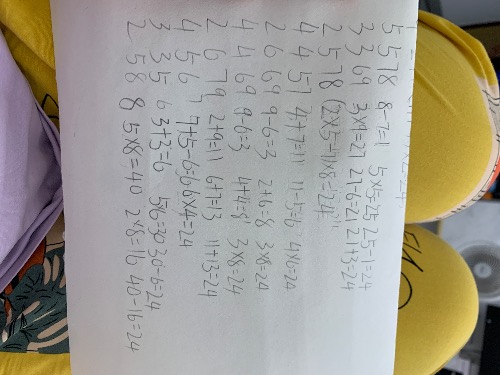 5 5 7 8 8-7=1 5x5=25 25-1=24
3 3 6 9 3x9=27 27-6=21 21+3=24
2 5 7 8 (2x5-7)x8=24
4 4 5 7 4+7=11 11-5=6 4x6=24
2 6 6 9 9-6=3 2+6=8 3x8=24
4 4 6 9 9-6=3 4+4=8 3x8=24
2 6 7 9 2+9=11 6+7=13 11+13=24
4 5 6 7 7+5-6=6 6x4=24
3 3 5 6 3+3=6 56=30 30-6=24
2 5 8 8 5x8=40 2x8=16 40-16=24